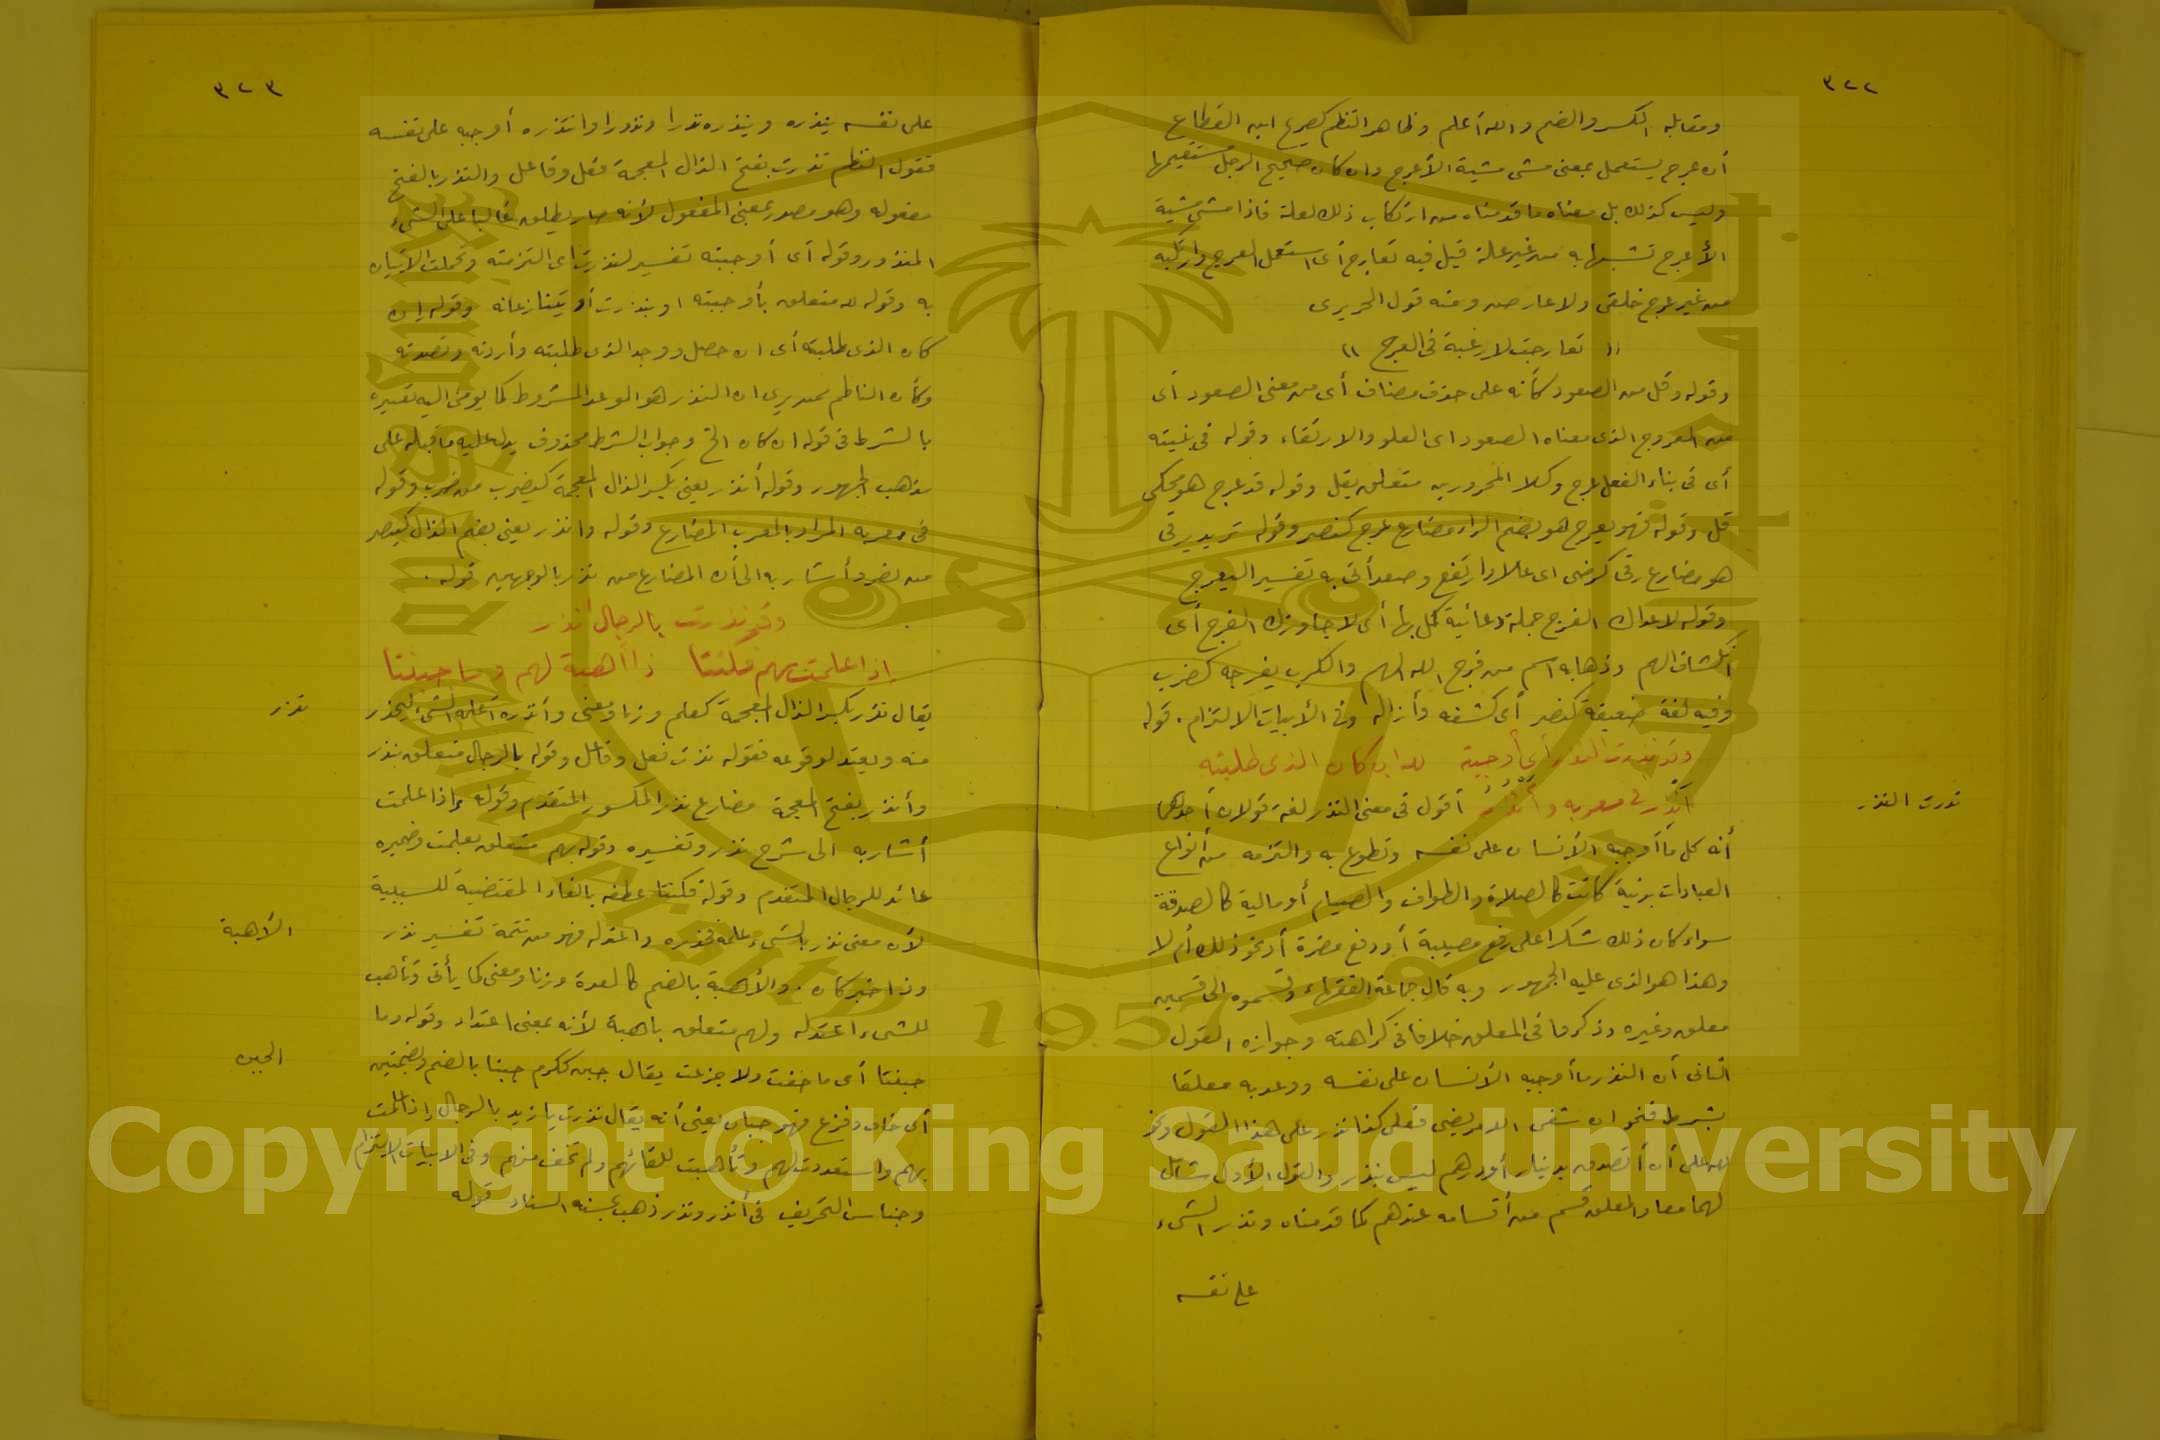 ٣٢٢
ومقابله الكسر والضم والله أعلم وظاهر النظم كصريح ابن القطاع
أن عرج يستعمل بمعنى مشى مشية الأعرج وان كان صحيح الرجل مستقيمها
وليس كذلك بل معناه ما قدمناه من ارتكاب ذلك لعلة فاذا مشى مشية
الأعرج تشبها به من غير علة قيل فيه تعارج أى استعمل العرج وارتكبه
من غير عرج خلقى ولا عارض ومنه قول الحريرى
" تعارجت لا رغبة فى العرج "
وقوله وقل من الصعود كأنه على حذف مضاف أى من معنى الصعود أى
من العروج الذى معناه الصعود اى العلو والارتقاء وقوله فى بنيته
أى فى بناء الفعل عرج وكلا المجرورين متعلق بقل وقوله قد عرج هو محكى
قل وقوله فهو يعرج هو بضم الراء مضارع عرج كنصر وقوله تريد يرقى
هو مضارع رقى كرضى اى علا وارتفع وصعد أتى به تفسير اليعرج
وقوله لا عداك الفرج جملة دعائية كمل بها أى لا جاوزك الفرج أى
انكشاف الهم وذهابه اسم من فرج الله الهم والكرب يفرجه كضرب
وفيه لغة ضعيفة كنصر أى كشفه وأزاله وفى الأبيات الالتزام . قوله
وقد نذرت النذر أى أوجبته لله ان كان الذى طلبته
أنذر فى معربه وأنذر أقول فى معنى النذر لغة قولان أحدهما
نذرت النذر
أنه كل ما أوجبه الأنسان على نفسه وتطوع به والتزمه من أنواع
العبادات بدنية كانت كالصلاة والطواف والصيام أو مالية كالصدقة
سواء كان ذلك شكرا على رفع مصيبة أو دفع مضرة أو نحو ذلك أم لا
وهذا هو الذى عليه الجمهور وبه قال جماعة الفقهاء وقسموه الى قسمين
معلق وغيره وذكروا فى المعلق خلافا فى كراهته وجوازه القول
الثانى أن النذر ما أوجبه الأنسان على نفسه ووعد به معلقا
بشرط فنحو ان شفى الله مريضى فعلى كذا نذر على هذا القول ونحو
لله على أن أتصدق بدينار أو درهم ليس بنذر والقول الأول شامل
لهما معا والمعلق قسم من أقسامه عندهم كما قدمناه ونذر الشىء
على نفسه
٣٢٣
على نفسه ينذره وينذره نذرا ونذورا وانتذره أوجبه على نفسه
فقول النظم نذرت بفتح الذال المعجمة فعل وفاعل والنذر بالفتح
مفعوله وهو مصدر بمعنى المفعول لأنه صار يطلق غالبا على الشىء
المنذور وقوله أى أوجبته تفسير لنذرت اى التزمته وتحملت الاتيان
به وقوله لله متعلق بأوجبته او بنذرت أو يتنازعانه وقوله إن
كان الذى طلبته أى ان حصل ووجد الذى طلبته وأردته وقصدته
وكأن الناظم ممن يرى ان النذر هو الوعد المشروط كما يومئ اليه تقييده
بالشرط فى قوله ان كان الخ وجواب الشرط محذوف يدل عليه ما قبله على
مذهب الجمهور وقوله أنذر يعنى بكسر الذال المعجمة كيضرب من ضرب وقوله
فى معربه المراد بالمعرب المضارع وقوله وانذر يعنى بضم الذال كينصر
من نصر وأشار به الى أن المضارع من نذر بالوجهين قوله .
وقد نذرت بالرجال أنذر
إذا علمت بهم فكنتا ذا أهبة لهم وما جبنتا
نذر
يقال نذر بكسر الذال المعجمة كعلم وزنا ومعنى وأنذره أعلمه الشىء ليحذر
منه ويعتد لوقوعه فقوله نذرت فعل وفاعل وقوله بالرجال متعلق بنذر
وأنذر بفتح المعجمة مضارع نذر المكسور المتقدم وقوله إذا علمت
أشار به الى شرح نذر وتفسيره وقوله بهم متعلق بعلمت وضميره
عائد للرجال المتقدم وقوله فكنتا عطفه بالفاء المقتضية للسببية
الأهبة
لأن معنى نذر بالشىء علمه فحذره واعتد له فهو من تتمة تفسير نذر
وذا خبر كان . والأهبة بالضم كالعدة وزنا ومعنى كما يأتى وتأهب
للشىء اعتد له ولهم متعلق بأهبة لأنه بمعنى اعتداد وقوله وما
الجبن
جبنتا أى ما خفت ولا جزعت يقال جبن ككرم جبنا بالضم وبضمتين
أى خاف وفزع فهو جبان يعنى أنه يقال نذرت يا زيد بالرجال إذا علمت
بهم واستعددت لهم وتأهبت للقائهم ولم تخف منهم وفى الابيات الالتزام
وجناس التحريف فى أنذر ونذر ذهب بحسنه السناد قوله
Copyright © King Saud University
King Saud University
1957